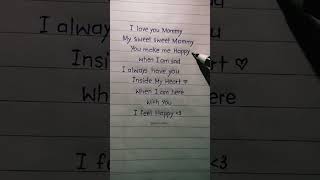 I love you Mommy
My sweet sweet Mommy
You make me Happy
when I am sad
I always have you
Inside My Heart ♡
When I am here
With You
I feel Happy <3